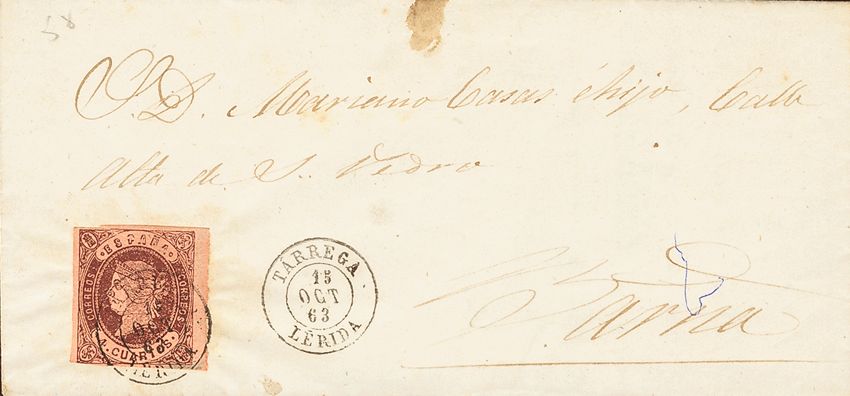 58
S. D. Mariano Casas é hijo, Calle
Alta de S. Pedro
Barna
ESPAÑA
CORREOS
CORREOS
4 CUARTOS
TÁRREGA
15
OCT
63
LÉRIDA
OCT
63
LÉRIDA